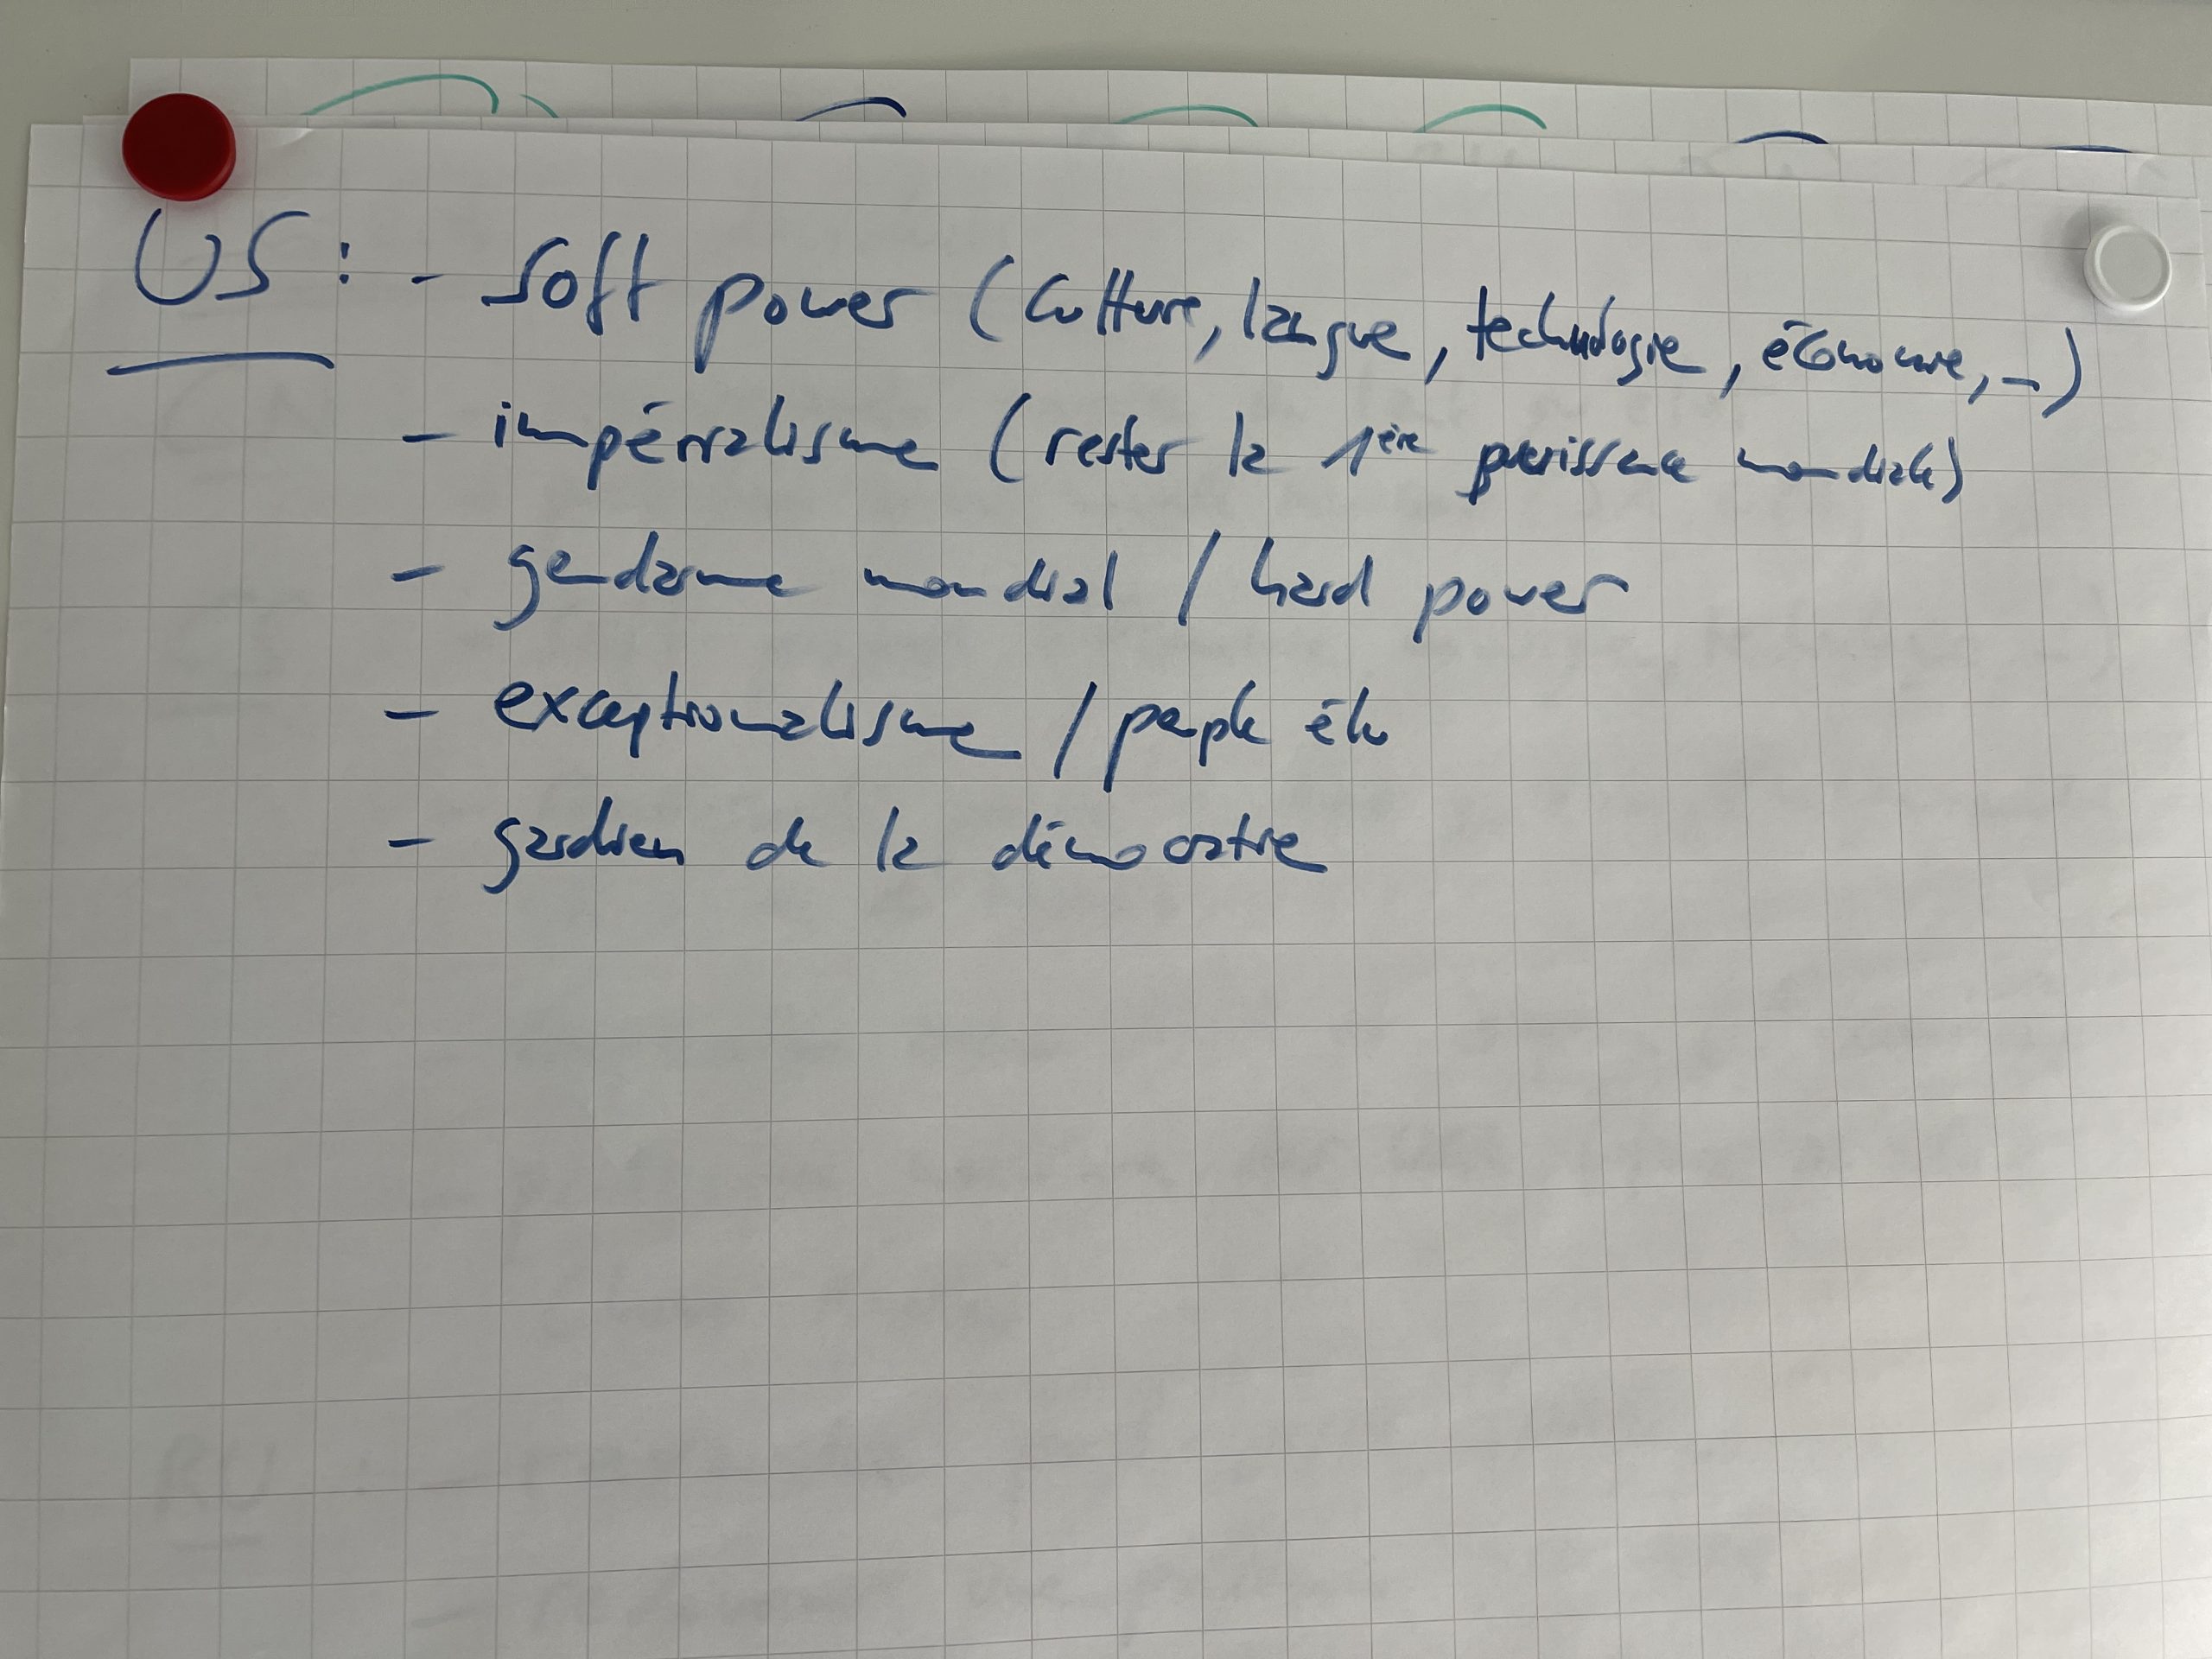 US : - soft power (culture, langue, technologie, économie, ...)
- impérialisme (rester la 1ère puissance mondiale)
- gendarme mondial / hard power
- exceptionnalisme / peuple élu
- gardien de la démocratie